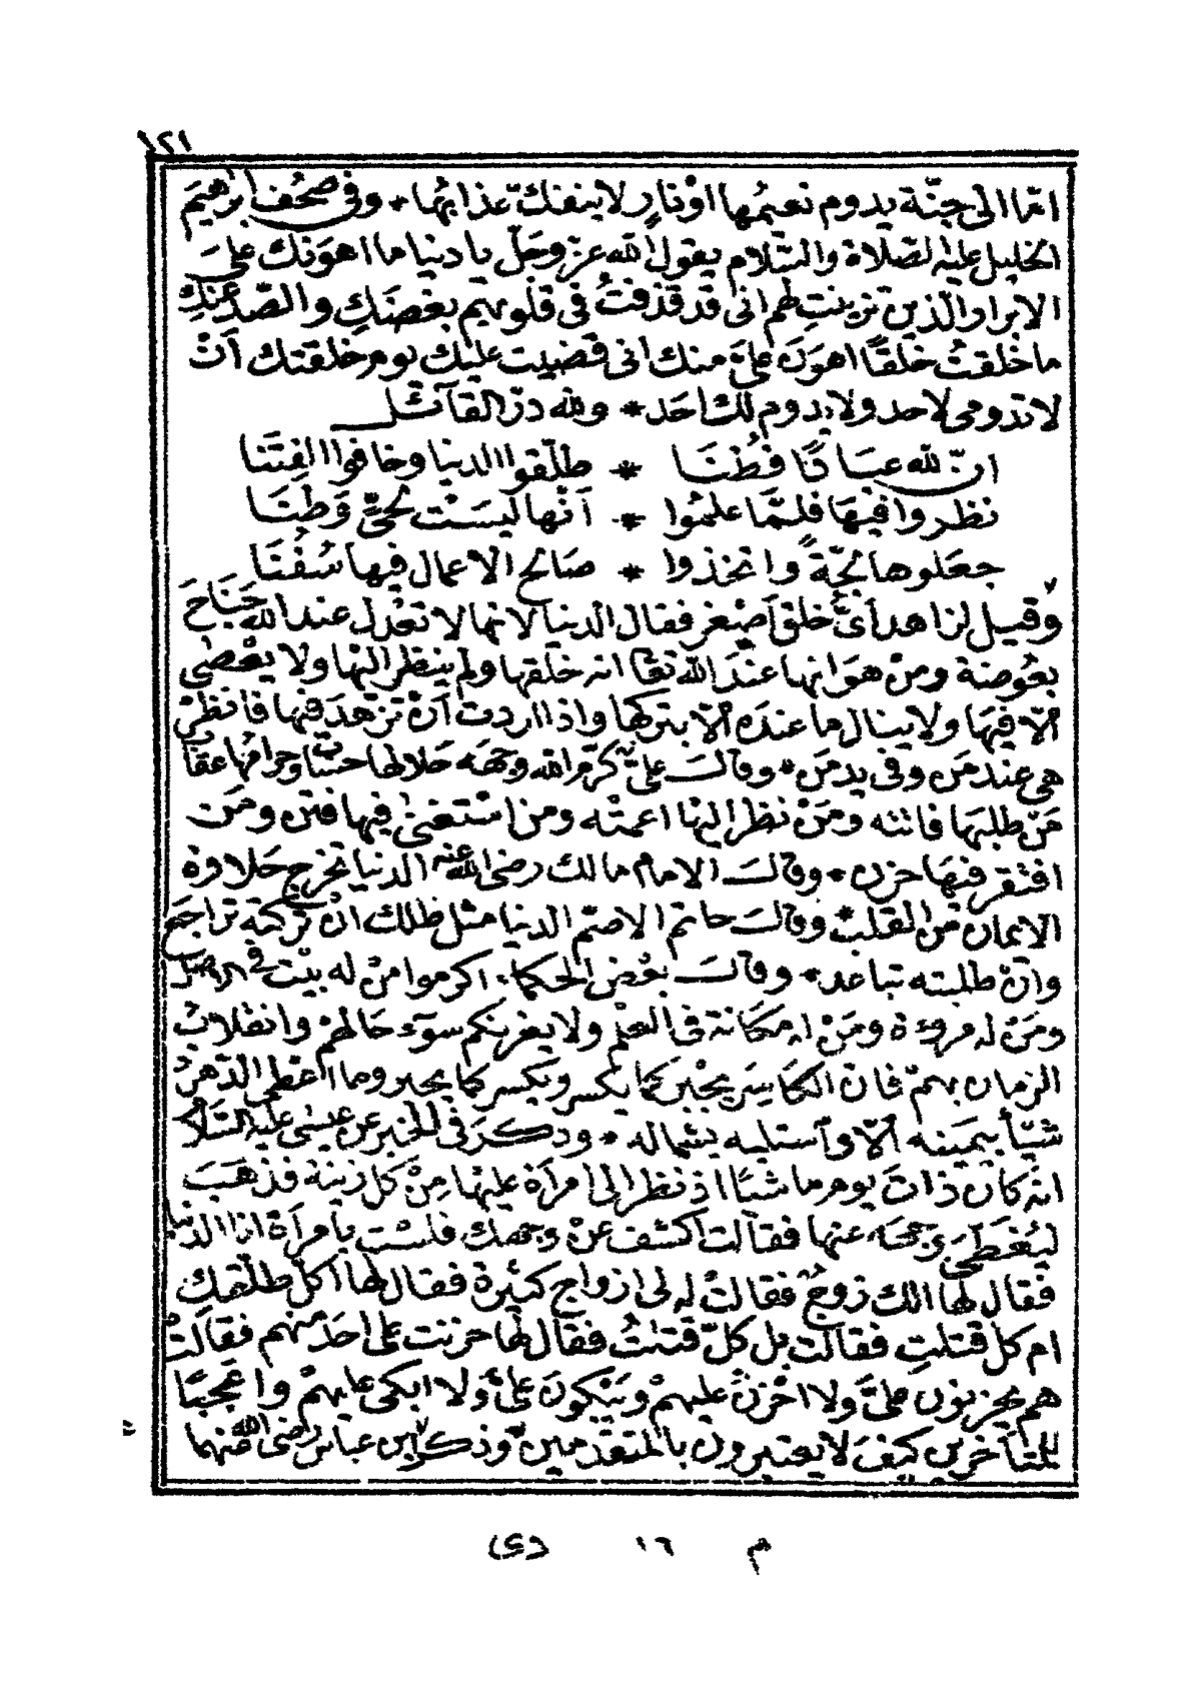 ١٢١
امّا الى جنّة يدوم نعيمُها اوْنارٍ لاينفكّ عذابُها * وفى صحُف ابرهيمَ
الخليل عليْه الصّلاة والسّلام يقول الله عزّ وجَلّ يا دنيا ما اهوَنك علىَ
الابرار الّذين تزينتِ لهم انى قد قذفتُ فى قلوبهم بغضَكِ والصّدّ عنكِ
ما خلقتُ خلقًا اهوَنَ علىَّ منك انى قضيت عليْك يوم خلقتك انْ
لا تدومى لاحد ولا يدوم لك احَد * ولله درّ القآئل
انّ لله عبَادًا فُطَنَا * طلّقوا الدنيا وخافوا الفِتَنا
نظروا فيهَا فلمَّا علمُوا * أنّها ليسَتْ لحىٍّ وَطَنَا
جعَلوها لجّةً واتخذوا * صَالح الاعمال فيها سُفُنَا
وقيل لزاهد اىّ خلق اصْغر فقال الدنيا لانها لا تعْدل عند الله جَناحَ
بعُوضة ومنْ هوَانها عنْدَ الله تعَا انه خلقها ولم ينظر اليْها ولا يعْصَى
الّا فيهَا ولا ينال ما عندَه الّا بتركها واذا اردت انْ تزهدَ فيها فانظرْ
هى عند مَن وفى يد مَن * وقالَ علىّ كرّم الله وجهَه حَلالها حسَاب وحرامُها عقا
مَنْ طلبهَا فاتته ومَنْ نظر اليْها اعمتْه ومن اسْتغنىٰ فيها فتن ومَن
افتقر فيهَا حزن * وقالَ الامام مالك رضى الله عنه الدنيا تخرج حَلاوة
الايمان منَ القلب * وقالَ حاتم الاصَمّ الدنيا مثل ظلك انْ تركته تراجَع
وانْ طلبته تباعد * وقالَ بعْض الحكماء اكرموا منْ له بيْت فى الاصْل
ومَنْ له مروءة ومَنْ له مكَانة فى العلْم ولا يغرنكم سوٓء حَالهمْ وانقلابُ
الزمان بهمْ فان الكَاسِرَ يجْبر كما يكسر ويكسر كما يجبر وما اعْطى الدّهرُ
شيْأً بيَمينه الّا وٱستلبه بشماله * وذكرَ فى الخبر عن عيسٰى عليْه السّلام
انه كان ذات يوم ماشيًا اذ نظر الى امرأة عليْها مِنْ كل زينة فذهَبَ
ليُغَطىَ وَجهَه عنها فقالت اكشف عنْ وجهك فلسْتِ بامرأة انا الدنيا
فقال لها الك زوجٌ فقالتْ له لى ازواج كثيرة فقال لها اكل طلّقكِ
ام كل قتلتِ فقالت بل كلّ قتلتُ فقال لها حزنت على احَد منهم فقالتْ
هم يحزنون علىَّ ولا احْزن عليهمْ وَيبْكونَ علىَّ ولا ابكى عليهمْ واعَجبًا
للمتأخرين كيْفَ لا يعتبرون بالمتقدمين * وذكر ابن عباس رضى الله عنهما
م ١٦ (ى د